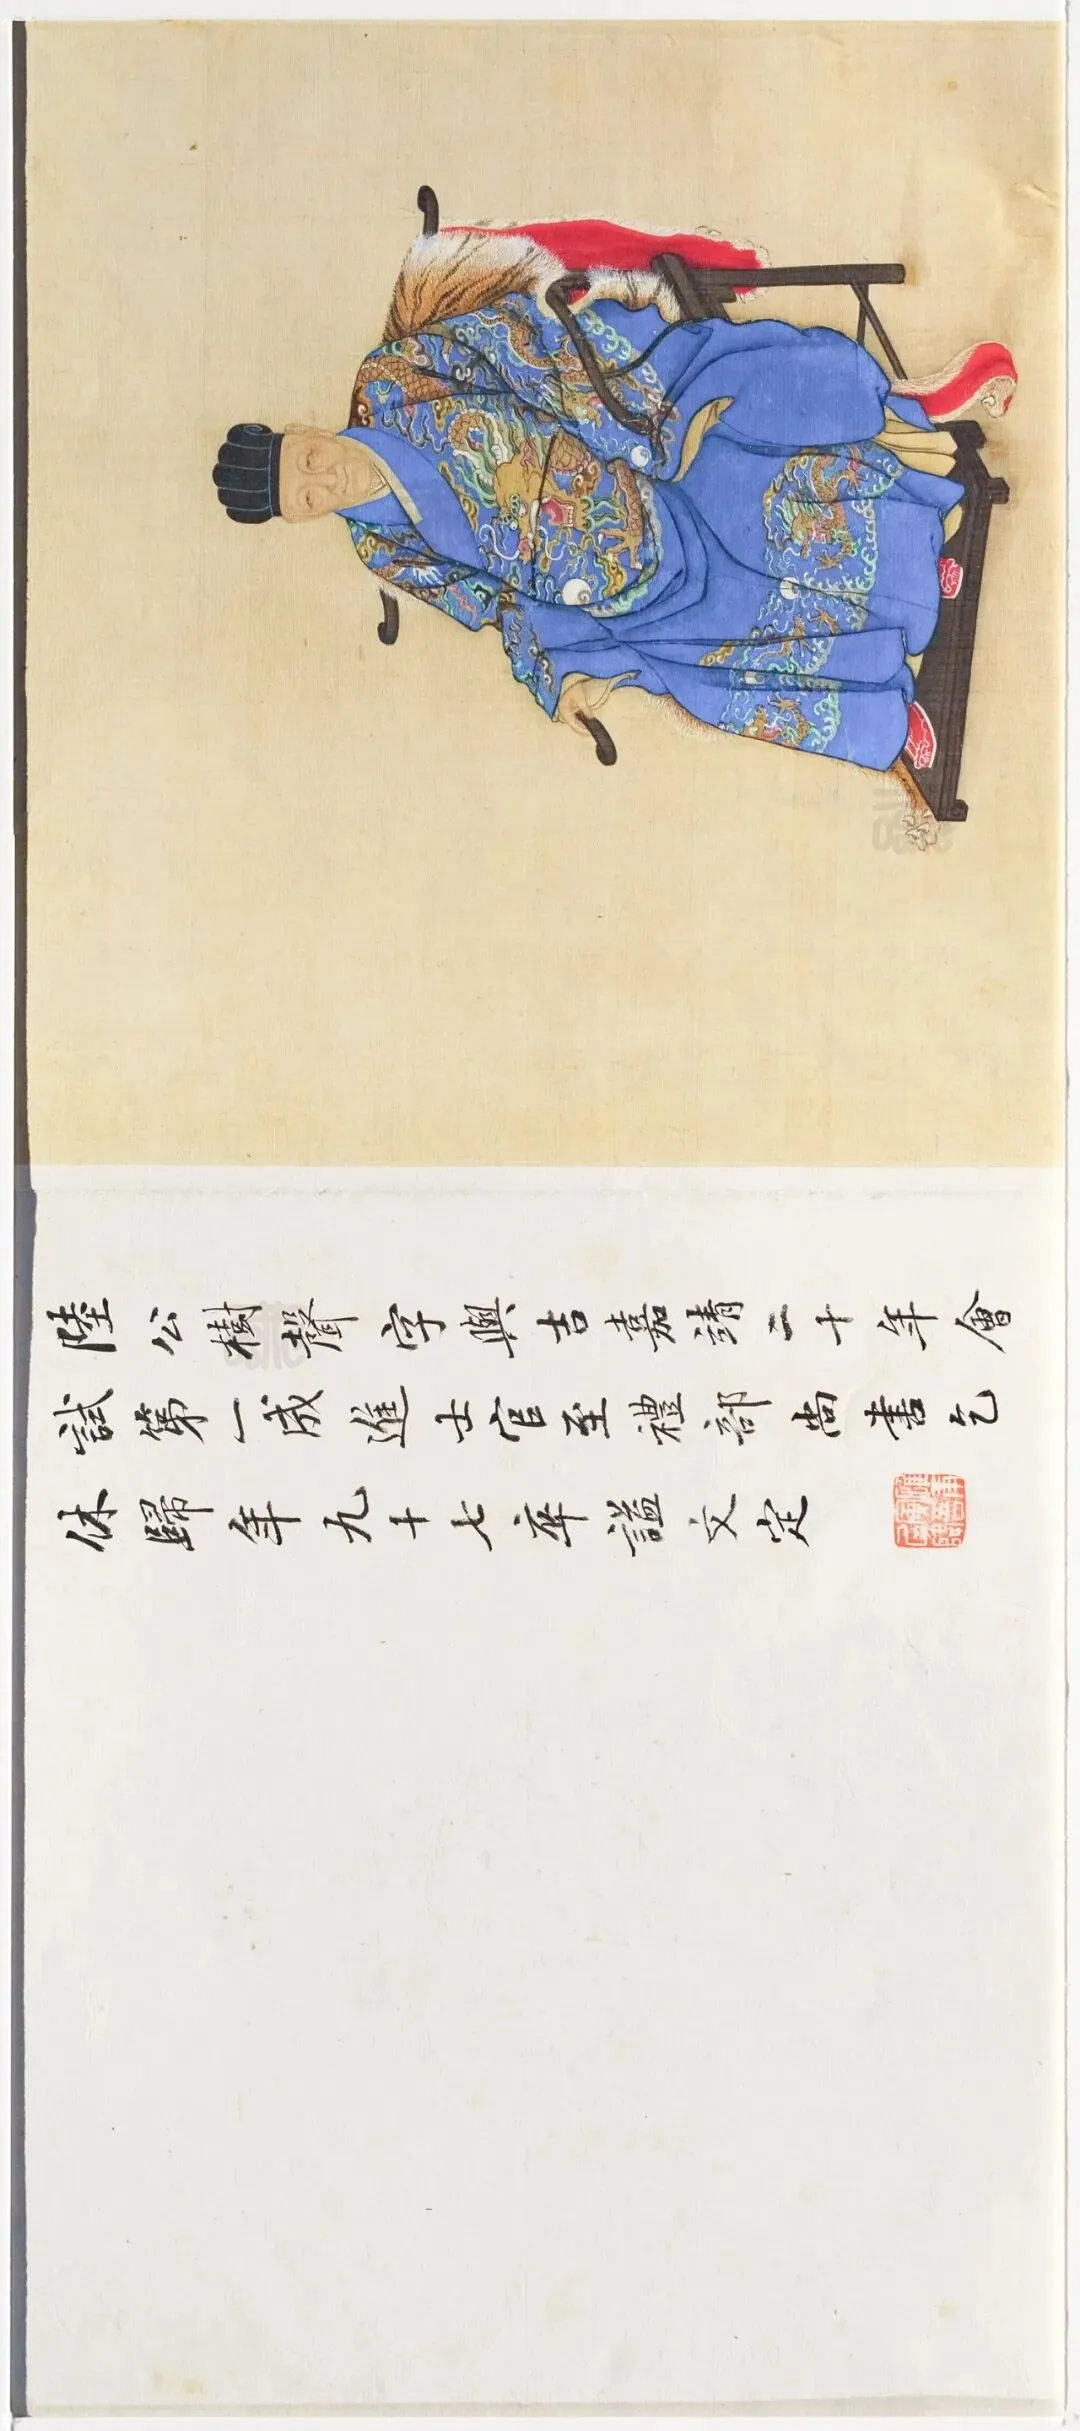 陸公樹聲字與吉嘉靖二十年會
試第一成進士官至禮部尚書乞
休歸年九十七卒謚文定